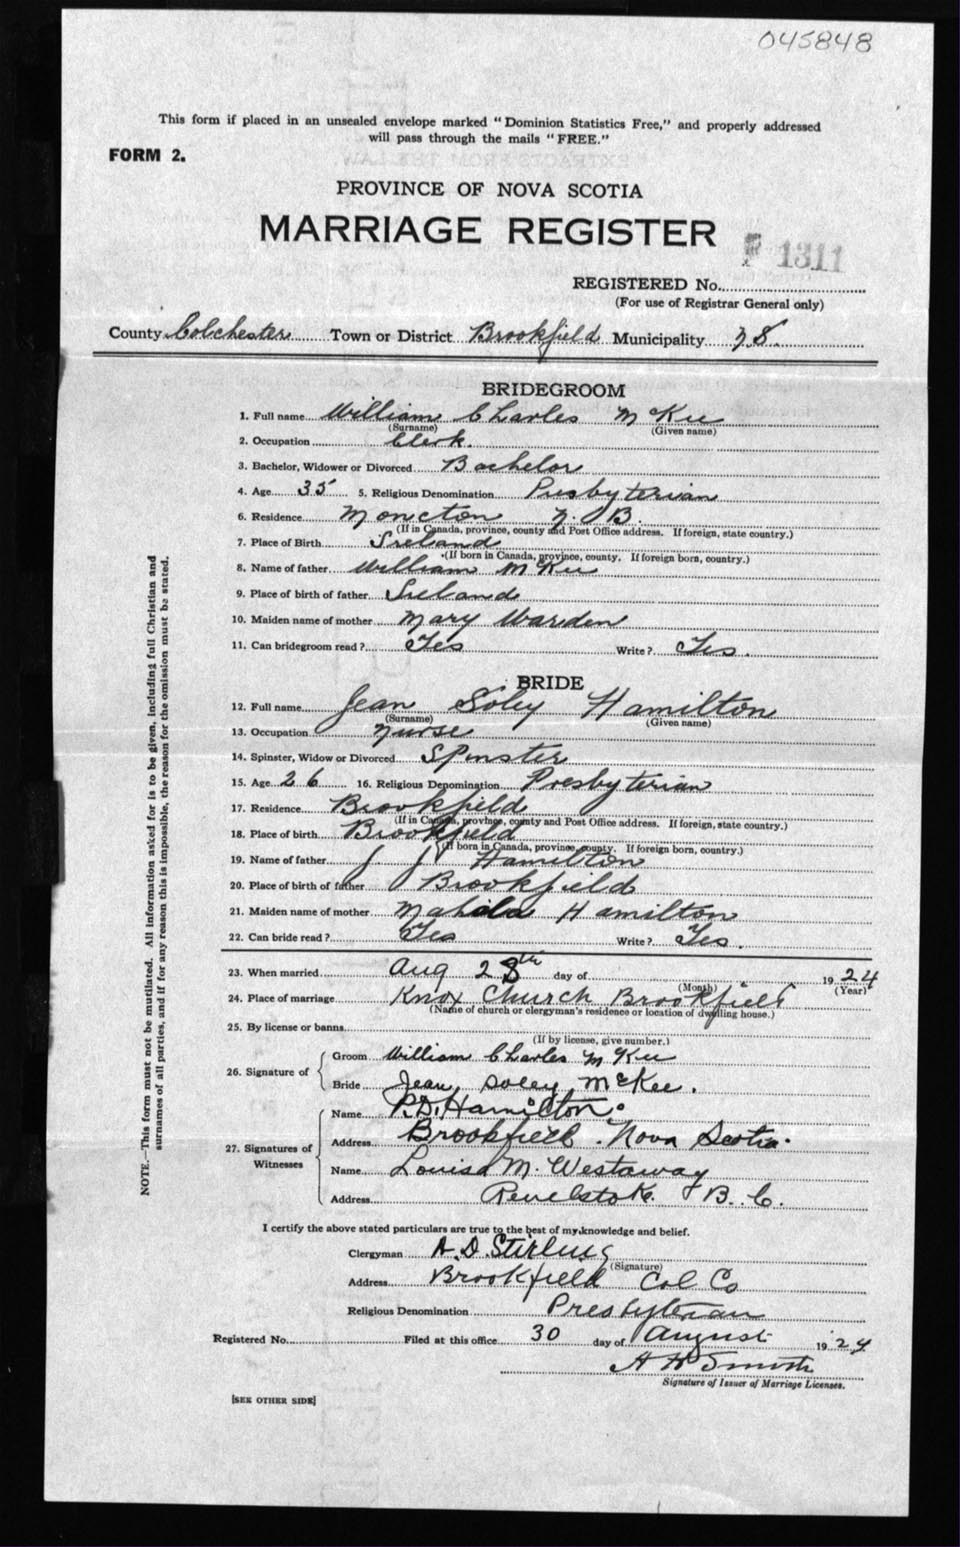 045848
This form if placed in an unsealed envelope marked "Dominion Statistics Free," and properly addressed
will pass through the mails "FREE."
FORM 2.
PROVINCE OF NOVA SCOTIA
MARRIAGE REGISTER
1311
REGISTERED No.
(For use of Registrar General only)
County Colchester Town or District Brookfield Municipality N.S.
BRIDEGROOM
1. Full name William Charles McKee
(Surname) (Given name)
2. Occupation Clerk.
3. Bachelor, Widower or Divorced Bachelor
4. Age 35 5. Religious Denomination Presbyterian
6. Residence Moncton N. B.
(If in Canada, province, county and Post Office address. If foreign, state country.)
7. Place of Birth Ireland
(If born in Canada, province, county. If foreign born, country.)
8. Name of father William McKee
9. Place of birth of father Ireland
10. Maiden name of mother Mary Warden
11. Can bridegroom read? Yes Write? Yes.
BRIDE
12. Full name Jean Soley Hamilton
(Surname) (Given name)
13. Occupation Nurse
14. Spinster, Widow or Divorced Spinster
15. Age 26 16. Religious Denomination Presbyterian
17. Residence Brookfield
(If in Canada, province, county and Post Office address. If foreign, state country.)
18. Place of birth Brookfield
(If born in Canada, province, county. If foreign born, country.)
19. Name of father J. J. Hamilton
20. Place of birth of father Brookfield
21. Maiden name of mother Hamilton
22. Can bride read? Yes Write? Yes.
23. When married Aug 28th day of 1924
(Month) (Year)
24. Place of marriage Knox Church Brookfield
(Name of church or clergyman's residence or location of dwelling house.)
25. By license or banns
(If by license, give number.)
26. Signature of Groom William Charles McKee
Bride Jean Soley McKee.
27. Signatures of Witnesses Name R.D. Hamilton.
Address Brookfield. Nova Scotia.
Name Louisa M. Westaway
Address Revelstoke B. C.
I certify the above stated particulars are true to the best of my knowledge and belief.
Clergyman A. D. Stirling
(Signature)
Address Brookfield Col Co
Religious Denomination Presbyterian
Registered No. Filed at this office 30 day of August 1924
A H Smith
Signature of Issuer of Marriage Licenses.
[SEE OTHER SIDE]
NOTE.—This form must not be mutilated. All information asked for is to be given, including full Christian and
surnames of all parties, and if for any reason this is impossible, the reason for the omission must be stated.